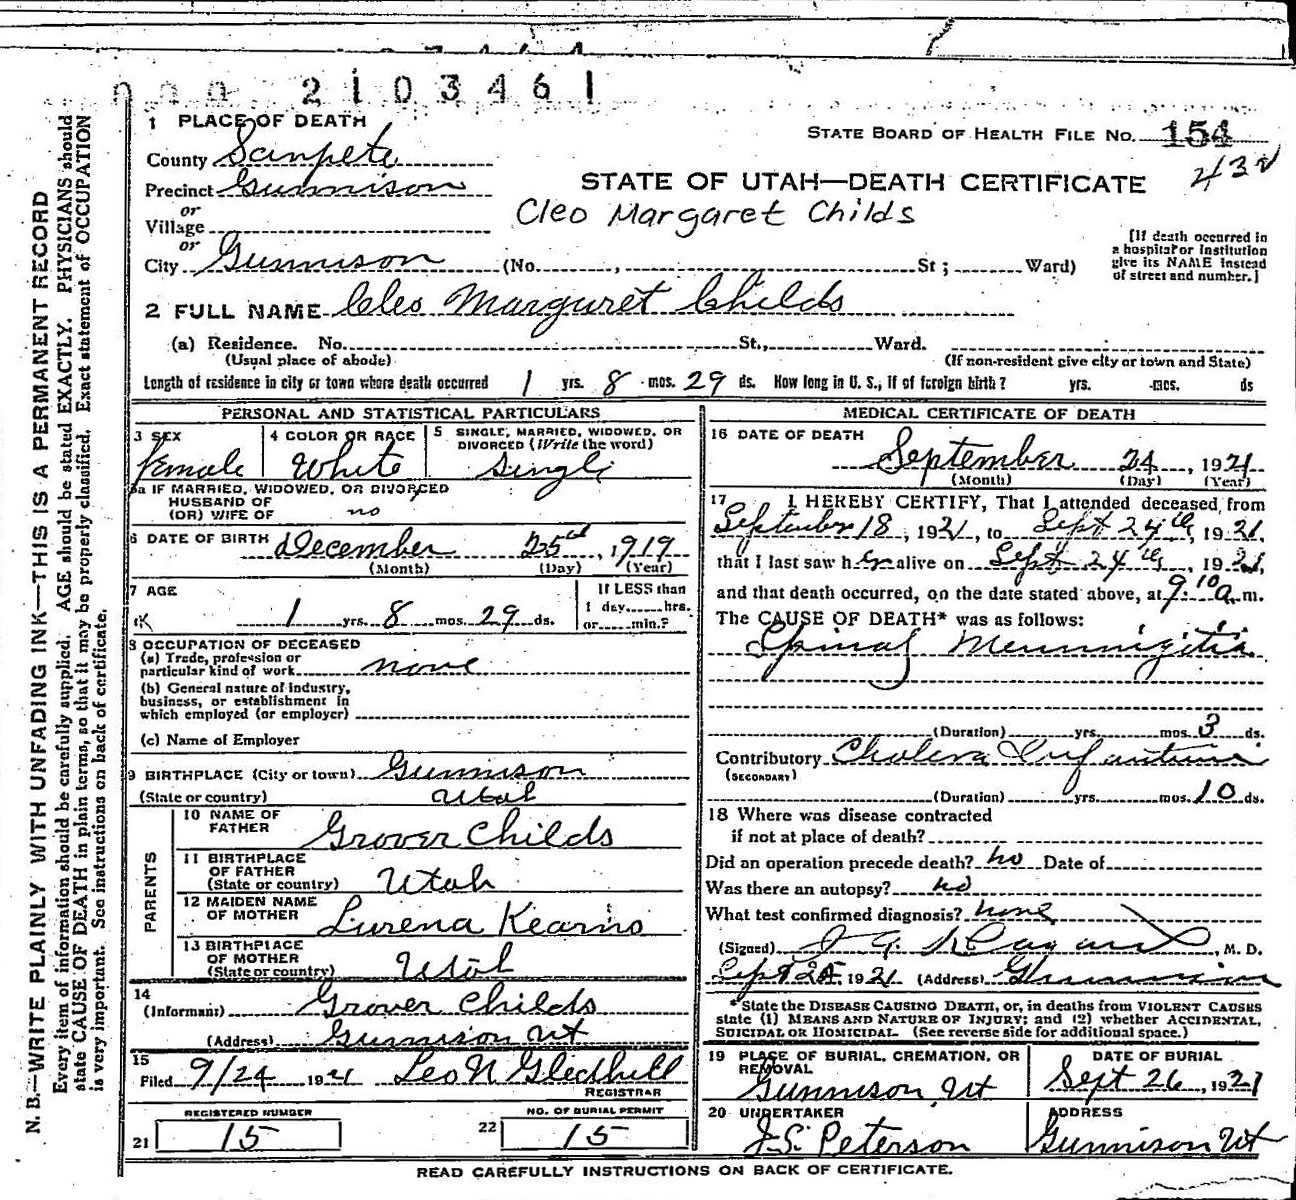 2103461
1 PLACE OF DEATH
STATE BOARD OF HEALTH FILE NO. 154
432
County Sanpete
Precinct Gunnison
STATE OF UTAH—DEATH CERTIFICATE
or
Village
Cleo Margaret Childs
or
City Gunnison (No. , St ; Ward)
[If death occurred in
a hospital or institution
give its NAME instead
of street and number.]
2 FULL NAME Cleo Margaret Childs
(a) Residence. No. St., Ward.
(Usual place of abode) (If non-resident give city or town and State)
Length of residence in city or town where death occurred 1 yrs. 8 mos. 29 ds. How long in U. S., if of foreign birth? yrs. mos. ds
PERSONAL AND STATISTICAL PARTICULARS
3 SEX
Female
4 COLOR OR RACE
White
5 SINGLE, MARRIED, WIDOWED, OR
DIVORCED (Write the word)
Single
5a IF MARRIED, WIDOWED, OR DIVORCED
HUSBAND OF
(OR) WIFE OF no
6 DATE OF BIRTH December 25th, 1919
(Month) (Day) (Year)
7 AGE
1 yrs. 8 mos. 29 ds.
If LESS than
1 day hrs.
or min.?
8 OCCUPATION OF DECEASED
(a) Trade, profession or
particular kind of work none
(b) General nature of industry,
business, or establishment in
which employed (or employer)
(c) Name of Employer
9 BIRTHPLACE (City or town) Gunnison
(State or country) Utah
PARENTS
10 NAME OF
FATHER Grover Childs
11 BIRTHPLACE
OF FATHER
(State or country) Utah
12 MAIDEN NAME
OF MOTHER Lurena Kearns
13 BIRTHPLACE
OF MOTHER
(State or country) Utah
14
(Informant) Grover Childs
(Address) Gunnison Ut
15
Filed 9/24 1921 Leo N Gledhill
REGISTRAR
REGISTERED NUMBER
21 15
NO. OF BURIAL PERMIT
22 15
MEDICAL CERTIFICATE OF DEATH
16 DATE OF DEATH
September 24, 1921
(Month) (Day) (Year)
17 I HEREBY CERTIFY, That I attended deceased from
September 18, 1921, to Sept 24th, 1921,
that I last saw her alive on Sept 24th, 1921,
and that death occurred, on the date stated above, at 9:10 a.m.
The CAUSE OF DEATH* was as follows:
Spinal Menningitis
(Duration) yrs. mos. 3 ds.
Contributory Cholera Infantum
(SECONDARY)
(Duration) yrs. mos. 10 ds.
18 Where was disease contracted
if not at place of death?
Did an operation precede death? no Date of
Was there an autopsy? no
What test confirmed diagnosis? none
(Signed) , M. D.
Sept 25, 1921 (Address) Gunnison
*State the DISEASE CAUSING DEATH, or, in deaths from VIOLENT CAUSES
state (1) MEANS AND NATURE OF INJURY; and (2) whether ACCIDENTAL,
SUICIDAL OR HOMICIDAL. (See reverse side for additional space.)
19 PLACE OF BURIAL, CREMATION, OR
REMOVAL
Gunnison, Ut
DATE OF BURIAL
Sept 26, 1921
20 UNDERTAKER
J.S. Peterson
ADDRESS
Gunnison Ut
READ CAREFULLY INSTRUCTIONS ON BACK OF CERTIFICATE.
N. B.—WRITE PLAINLY WITH UNFADING INK—THIS IS A PERMANENT RECORD
Every item of information should be carefully supplied. AGE should be stated EXACTLY. PHYSICIANS should
state CAUSE OF DEATH in plain terms, so that it may be properly classified. Exact statement of OCCUPATION
is very important. See instructions on back of certificate.